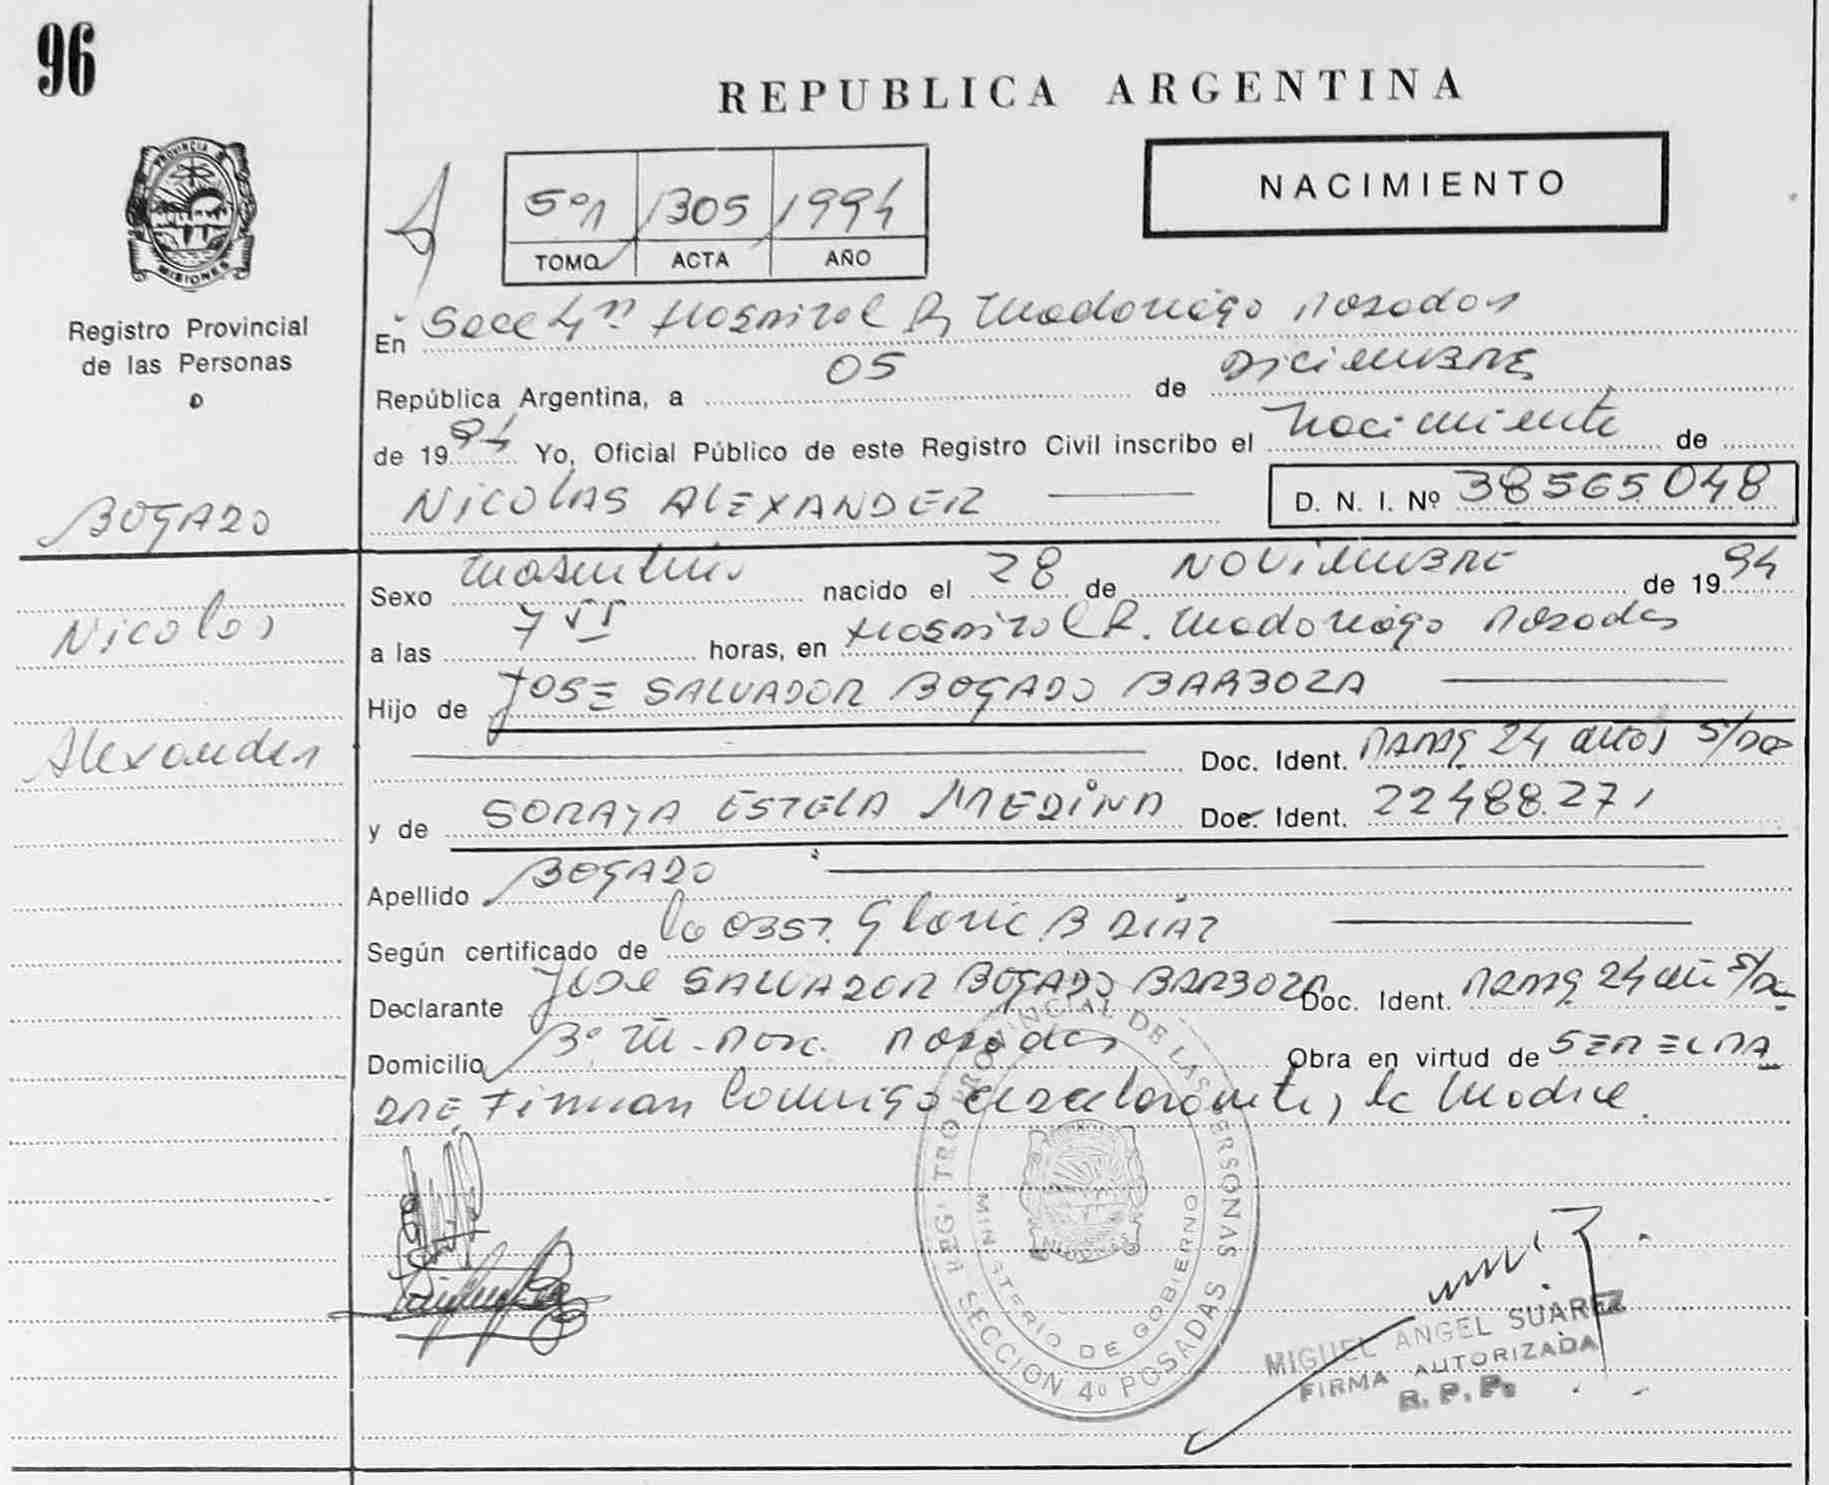 96
REPUBLICA ARGENTINA
PROVINCIA D
MISIONES
Registro Provincial
de las Personas
5º 1305 1994
TOMO ACTA AÑO
NACIMIENTO
En Secc 4ª Hospital R. Madariaga Posadas
República Argentina, a 05 de Diciembre
de 1994 Yo, Oficial Público de este Registro Civil inscribo el Nacimiento de
BOGADO
NICOLAS ALEXANDER D. N. I. Nº 38565.048
Nicolas
Alexander
Sexo Masculino nacido el 28 de NOVIEMBRE de 1994
a las 7 horas, en Hospital R. Madariaga Posadas
Hijo de JOSE SALVADOR BOGADO BARBOZA
Doc. Ident. PARAG 24 años S/Doc
y de SORAYA ESTELA MEDINA Doc. Ident. 22488.271
Apellido BOGADO
Según certificado de la OBST. Gloria B DIAZ
Declarante JOSE SALVADOR BOGADO BARBOZA Doc. Ident. PARAG 24 añ S/Doc
Domicilio Bº Posadas Obra en virtud de SER EL PA
DRE. Firman conmigo el declarante y la Madre.
REGISTRO PROVINCIAL DE LAS PERSONAS
SECCION 4º POSADAS
MINISTERIO DE GOBIERNO
MISIONES
MIGUEL ANGEL SUAREZ
FIRMA AUTORIZADA
R. P. P.